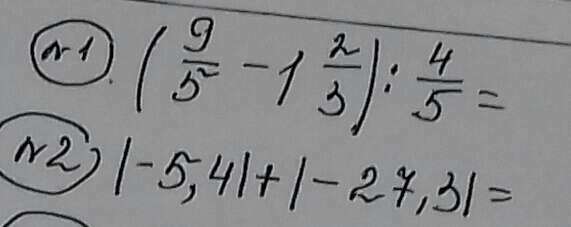 №1. (9/5 - 1 2/3) : 4/5 =
№2) |-5,4|+|-27,3|=